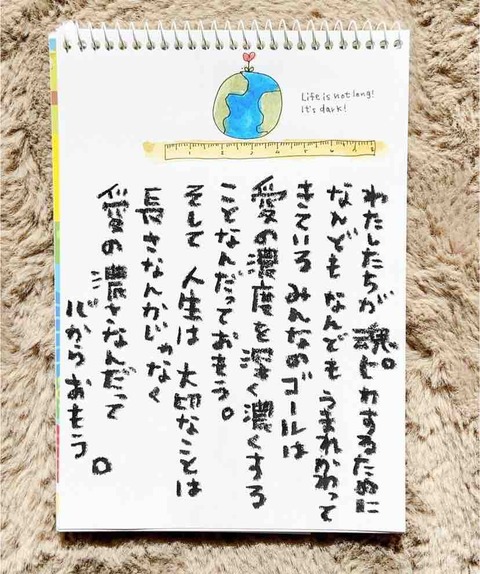 Life is not long!
It's dark!
わたしたちが 魂ピカするために
なんども なんども うまれかわって
きている みんなのゴールは
愛の濃度を深く濃くする
ことなんだっておもう。
そして 人生は 大切なことは
長さなんかじゃなく
愛の濃さなんだって
心からおもう。